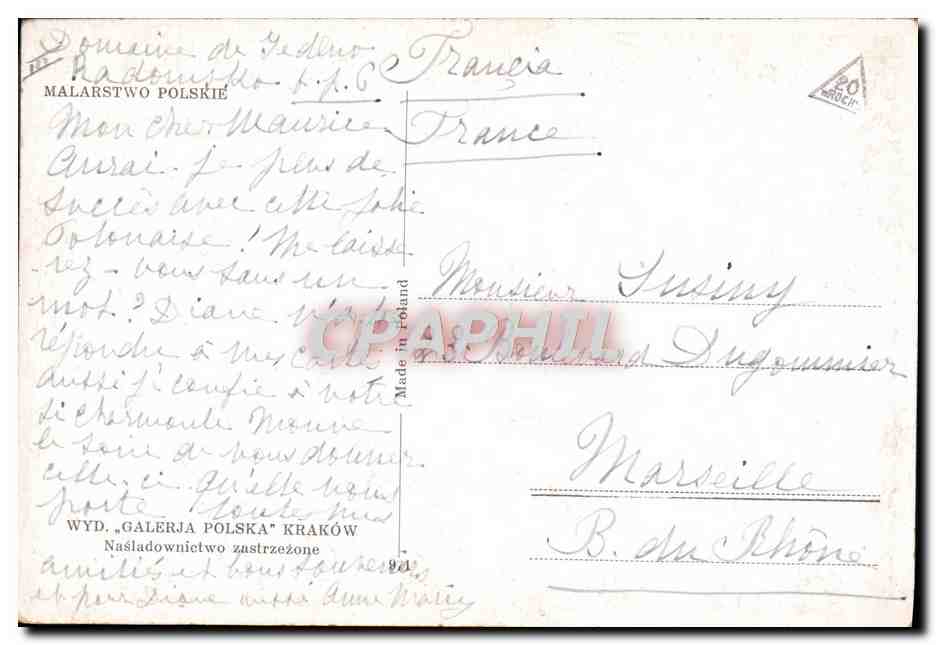 Domaine de Jedlno
Radomsko s.p. 6
MALARSTWO POLSKIE
Mon cher Maurice
Aurai-je plus de
succès avec cette jolie
Polonaise! Me laisse-
-rez-vous sans un
mot? Diane n'a pas
répondu à mes cartes
aussi j'confie à votre
si charmante Monne
le soin de vous donner
celle-ci. Qu'elle vous
porte toutes mes
WYD. „GALERJA POLSKA" KRAKÓW
Naśladownictwo zastrzeżone
amitiés et bons souvenirs
et pour Diane aussi Anne Mary
Made in Poland
CPAPHIL
Francja
France
20
"ROCH"
Monsieur Susiny
Boulevard Dugommier
Marseille
B. du Rhône